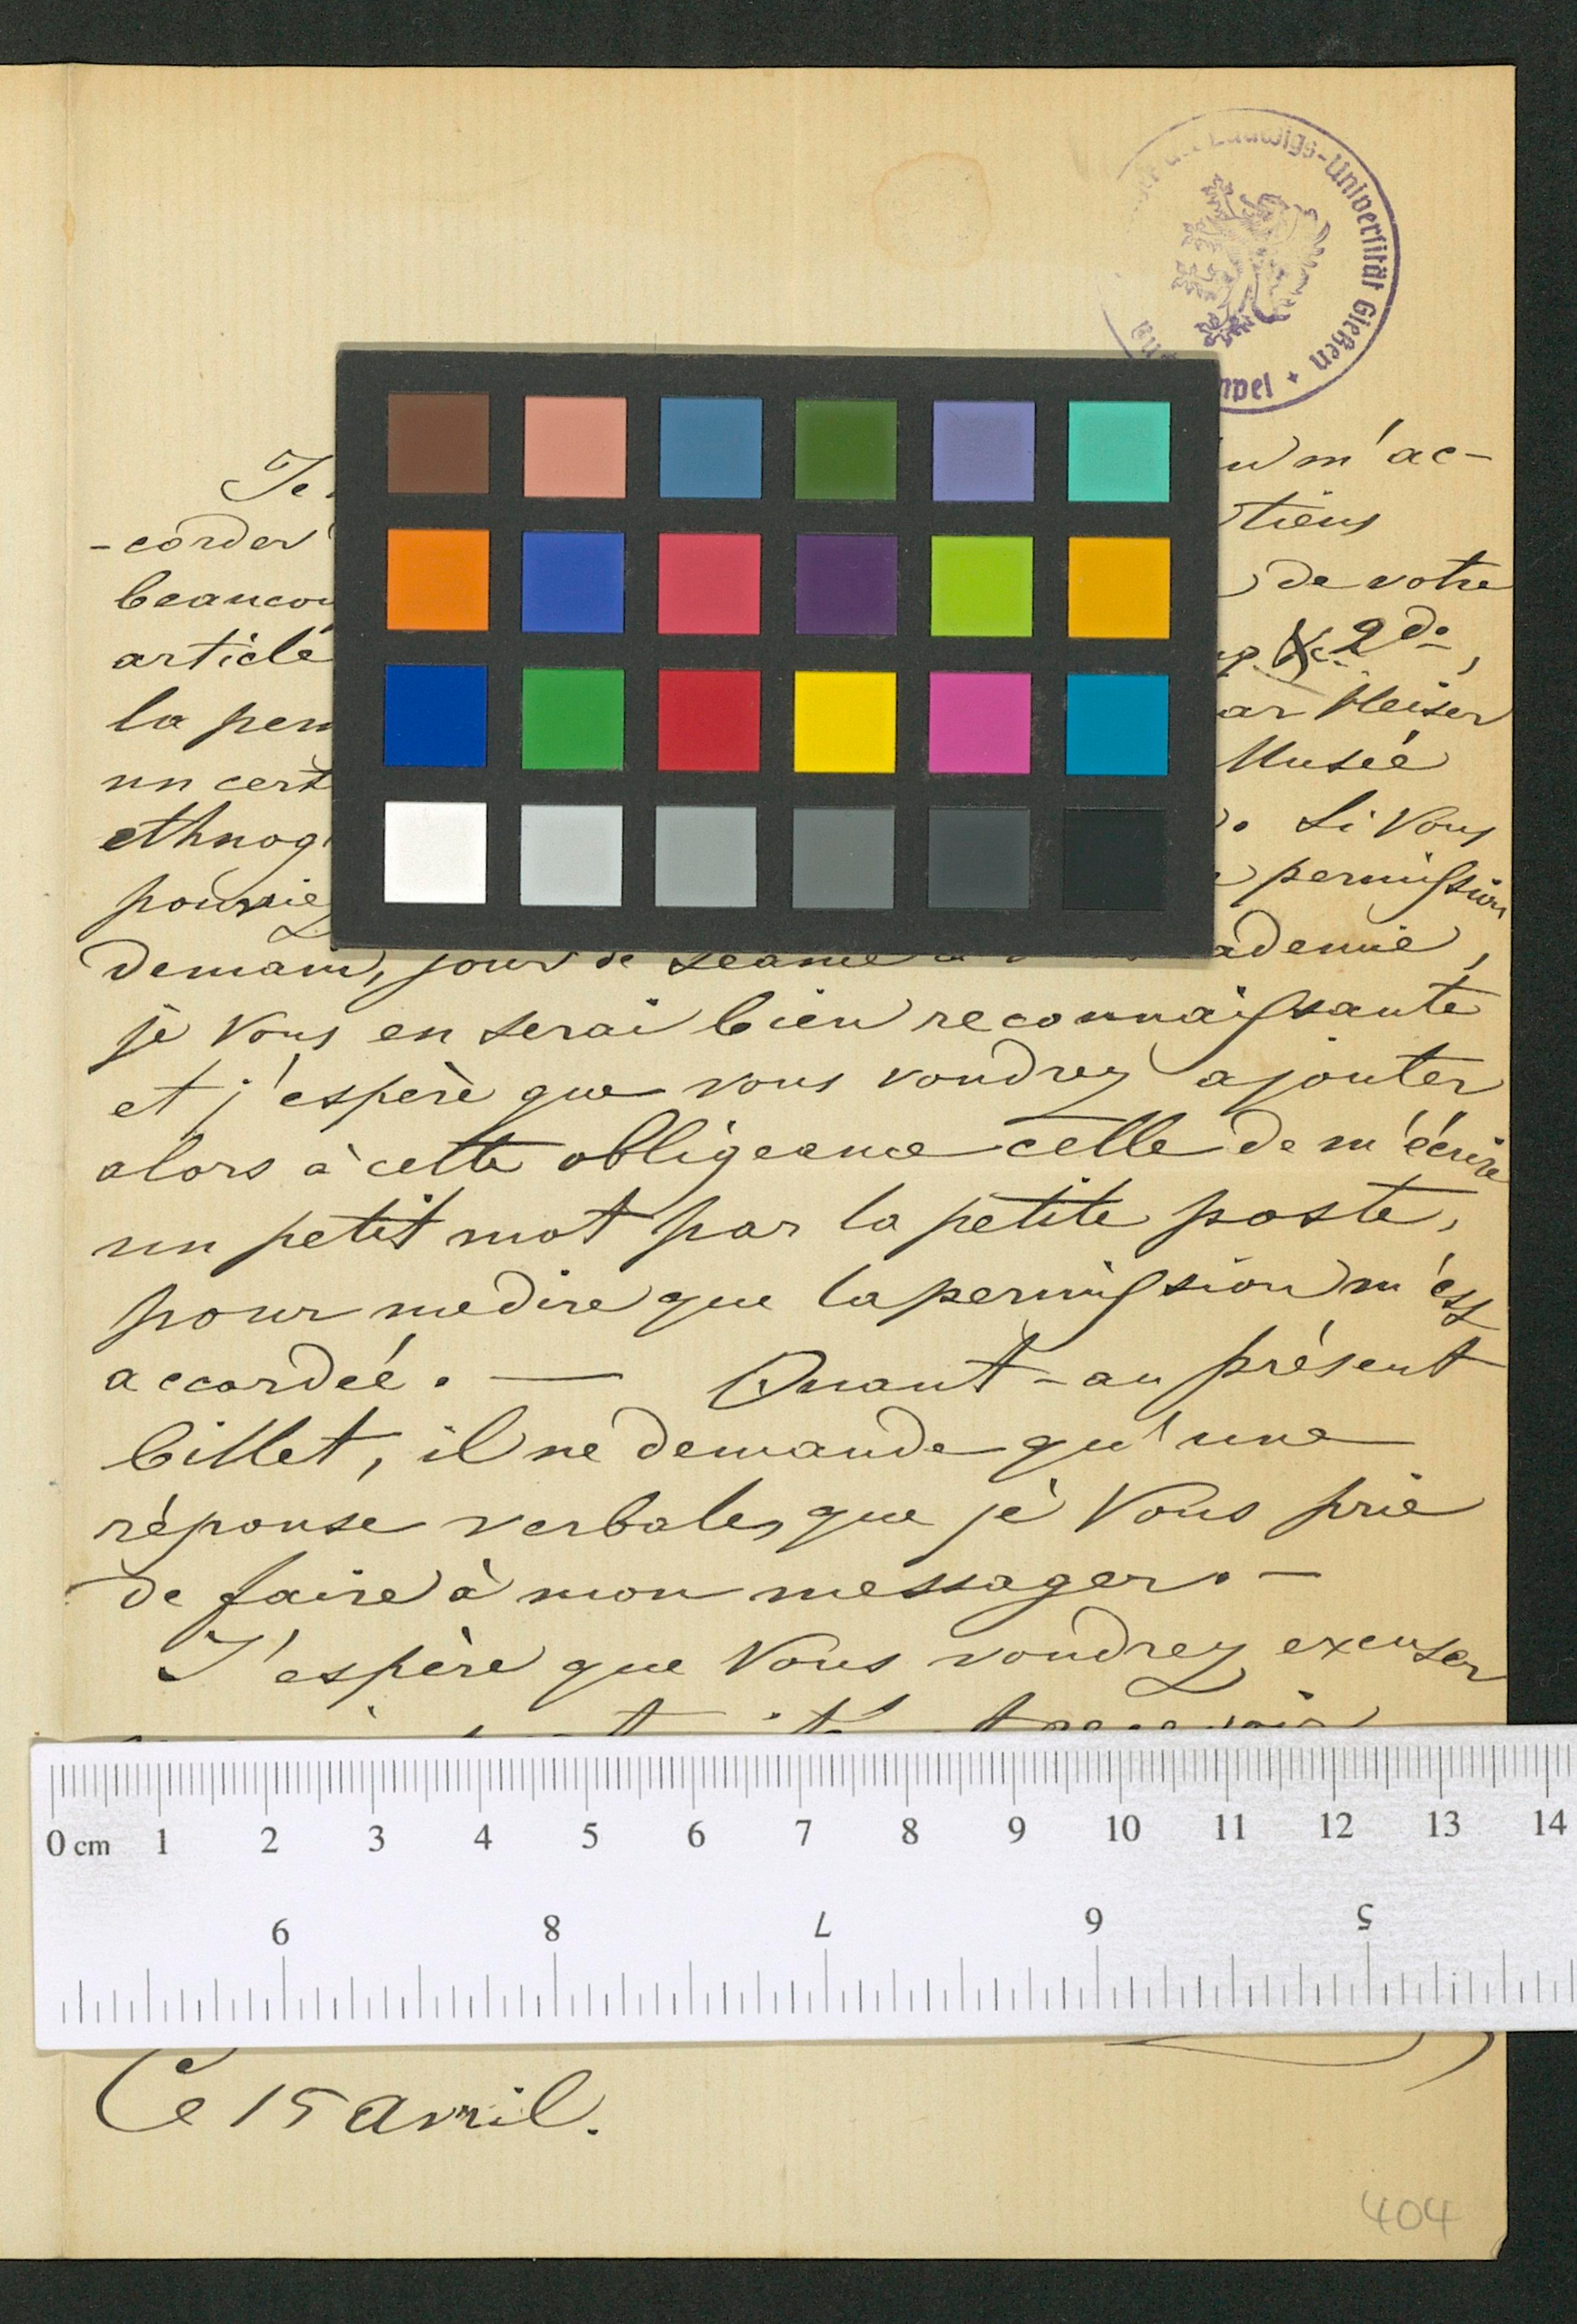 Ludwigs-Universität Gießen
Je
m'ac-
-corder
tiens
beaucou
de votre
article
2do,
la per
un cert
Musée
ethnog
Si Vous
permission
demain, jour de séance
adémie,
je Vous en serai bien reconnaissante
et j'espère que vous voudrez ajouter
alors à cette obligeance celle de m'écrire
un petit mot par la petite poste,
pour me dire que la permission m'est
accordée. — Quant-au présent
billet, il ne demande qu'une
réponse verbale, que je Vous prie
de faire à mon messager. —
J'espère que Vous voudrez excuser
0 cm 1 2 3 4 5 6 7 8 9 10 11 12 13 14
9 8 7 6 5
Ce 15 avril.
404